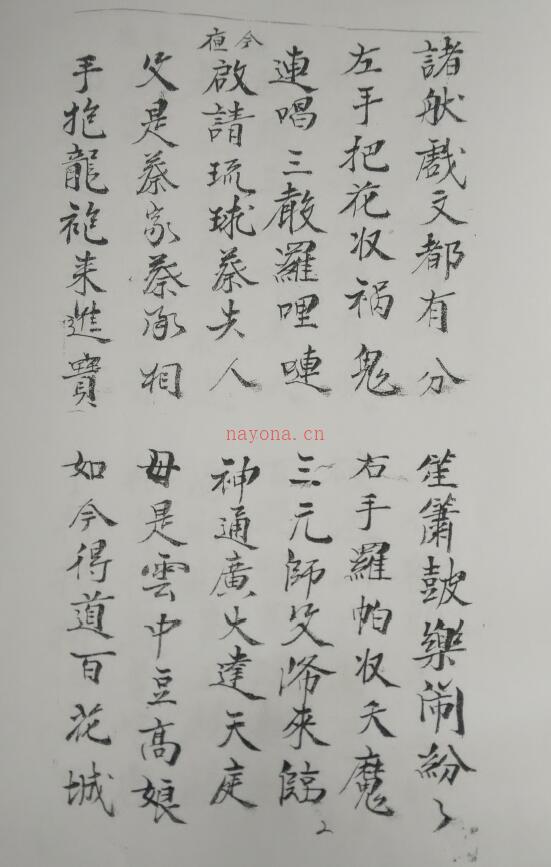 諸般戲文都有分 笙簫鼓樂鬧紛々
左手把花収禍鬼 右手羅帕収天魔
連唱三聲羅哩嗹 三元師父降來臨
今夜啟請琉球蔡夫人 神通廣大達天庭
父是蔡家蔡丞相 母是雲中豆高娘
手抱龍袍来進寶 如今得道百花城
2
nayona.cn